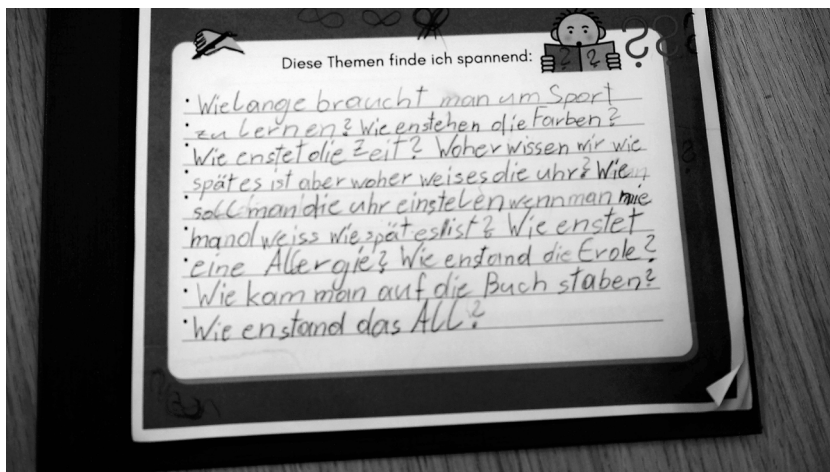 Diese Themen finde ich spannend:
· Wielange braucht man um Sport
· zu Lernen? Wie enstehen die Farben?
· Wie enstet die Zeit? Woher wissen wir wie
· spät es ist aber woher weises die uhr? Wie
· soll man die uhr einstelen wenn man nie
· mand weiss wie spät es ist? Wie enstet
· eine Allergie? Wie enstand die Erde?
· Wie kam man auf die Buch staben?
· Wie enstand das ALL?